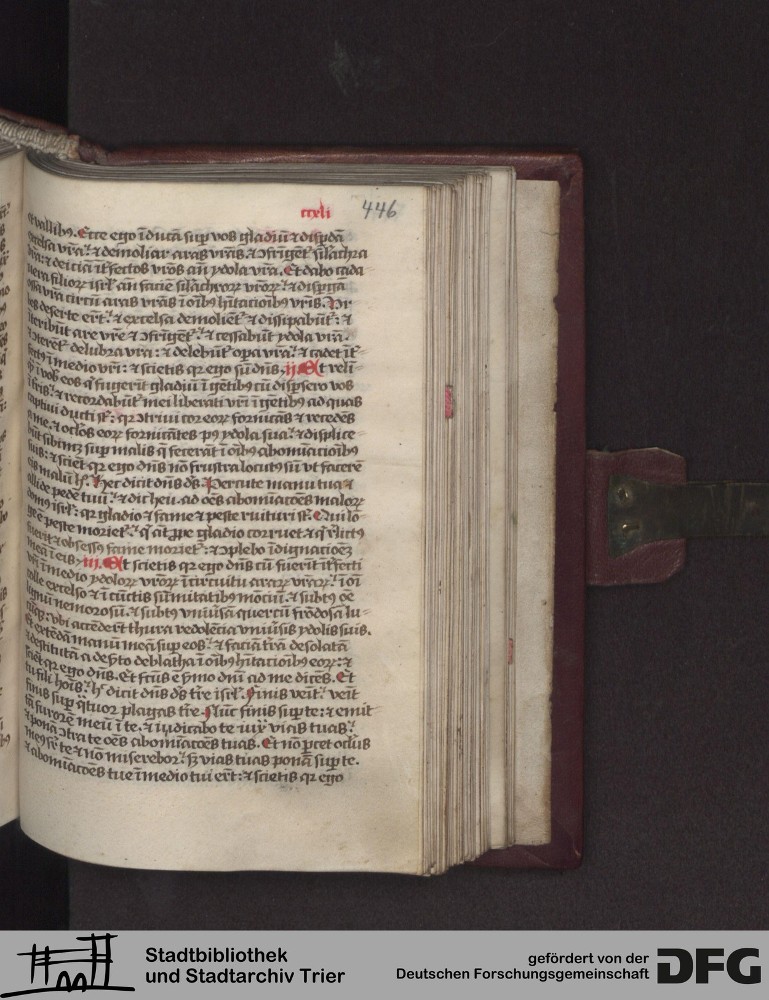 ccxli 446
et vallibꝫ. Ecce ego īducā suꝑ vos gladiū ⁊ disꝑdā
excelsa vr̄a: ⁊ demoliar aras vr̄as ⁊ ꝯfrīgētʳ silachra
vr̄a: ⁊ deiciā īt̄fectos vr̄os an̄ ydola vr̄a. Et dabo cada
uera filioꝝ isrl̄ an̄ faciē silachroꝝ vr̄oꝝ: ⁊ disꝑgā
ossa vr̄a circū aras vr̄as ī oībꝫ hītacioībꝫ vr̄is. Vr
bes deserte er̄t: ⁊ excelsa demoliētʳ ⁊ dissipabūtʳ: ⁊
īteribūt are vr̄e ⁊ ꝯfrīgētʳ: ⁊ cessabūt ydola vr̄a.
⁊ ꝯterētʳ delubra vr̄a: ⁊ delebūtʳ oꝑa vr̄a: ⁊ cadet īt̄
fectꝰ ī medio vr̄i: ⁊ scietis qꝛ ego sū dn̄s. ij. Et reli
ī vob eos q̄ fugerīt gladiū ī gētibꝫ cū disꝑsero vos
ī t̄ris: ⁊ recordabūtʳ mei liberati vr̄i ī gētibꝫ ad quas
captiui ducti st̄: qꝛ ꝯtriui cor eoꝝ fornicās ⁊ recedēs
a me: ⁊ oclōs eoꝝ fornicātes pꝰ ydola sua: ⁊ displice
būt sibimꝫ suꝑ malis q̄ fecerāt ī oībꝫ abomīacioībꝫ
suis: ⁊ sciēt qꝛ ego dn̄s nō frustra locutꝰ sū vt facerē
eis malū h͛. Hec dicit dn̄s ds̄. Percute manū tuā ⁊
allide pedē tuū: ⁊ dic heu ad oēs abomīacōes maloꝝ
domꝰ isrl̄: qꝛ gladio ⁊ fame ⁊ peste ruituri st̄. Qui lo
ge ē peste morietʳ: q̄ aūt ꝓpe gladio corruet ⁊ q̄ relictꝰ
fuerit ⁊ obsessꝰ fame morietʳ: ⁊ ꝯplebo īdignacioeꝫ
meā ī eis. iij. Et scietis qꝛ ego dn̄s cū fuerīt īt̄fecti
vr̄i ī medio ydoloꝝ vr̄oꝝ ī circuitu araꝝ vr̄aꝝ: ī oī
colle excelso ⁊ ī cūctis sūmitatibꝫ mōciū: ⁊ subtꝰ oē
lignū nemorosū: ⁊ subtꝰ vniūsā quercū frōdosā lu
cūqꝫ: vbi accēderūt thura redolēcia vniūsis ydolis suis.
Et extēdā manū meā suꝑ eos: ⁊ faciā t̄rā desolatā
⁊ destitutā a deẜto deblatha ī oībꝫ hītacioībꝫ eoꝝ: ⁊
sciēt qꝛ ego dn̄s. Et fcūs ē ẜmo dn̄i ad me dicēs. Et
tu fili hoīs: h͛ dicit dn̄s ds̄ t̄re isrl̄. Finis venit: venit
finis suꝑ q̄tuor plagas t̄re. Nūc finis suꝑ te: ⁊ emit
tā furorē meū ī te: ⁊ iudicabo te iux̄ vias tuas:
⁊ ponā ꝯtra te oēs abomīacōes tuas. Et nō ꝑcet oclūs
meꝰ suꝑ te ⁊ nō miserebor: sꝫ vias tuas ponā suꝑ te.
⁊ abomīacōes tue ī medio tui er̄t: ⁊ scietis qꝛ ego
Stadtbibliothek
und Stadtarchiv Trier
gefördert von der
Deutschen Forschungsgemeinschaft DFG